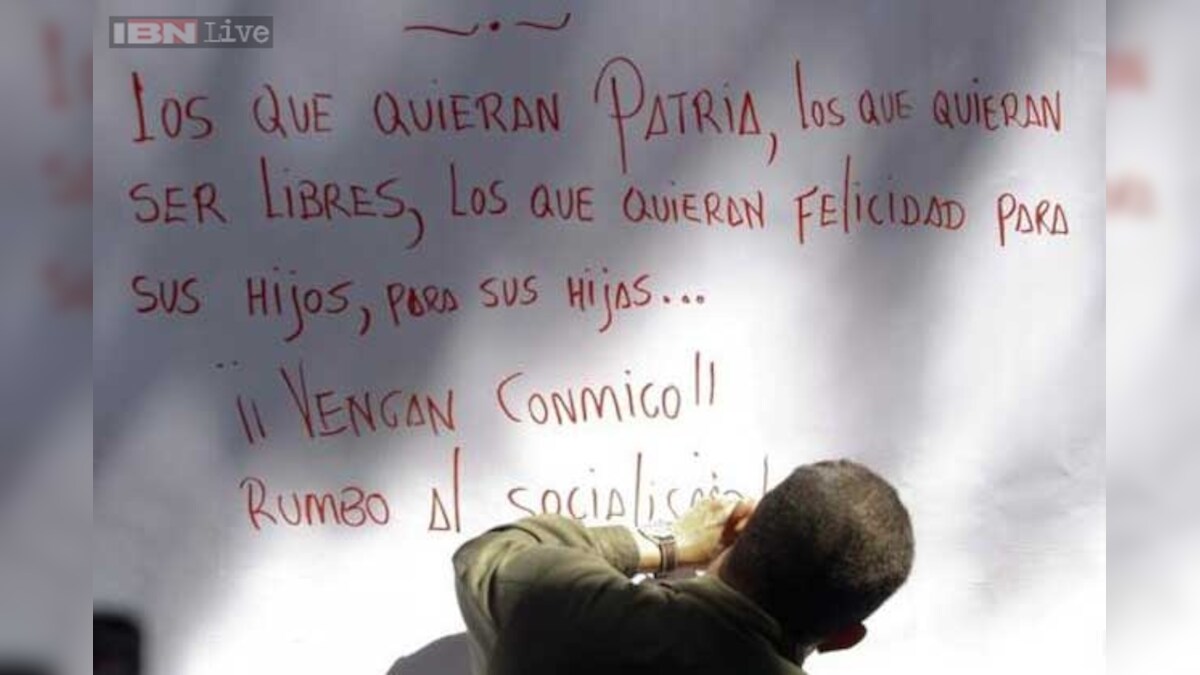 IBN Live
LOS QUE QUIERAN PATRIA, LOS QUE QUIERAN
SER LIBRES, LOS QUE QUIERAN FELICIDAD PARA
SUS HIJOS, PARA SUS HIJAS...
¡¡ VENGAN CONMIGO!!
RUMBO AL